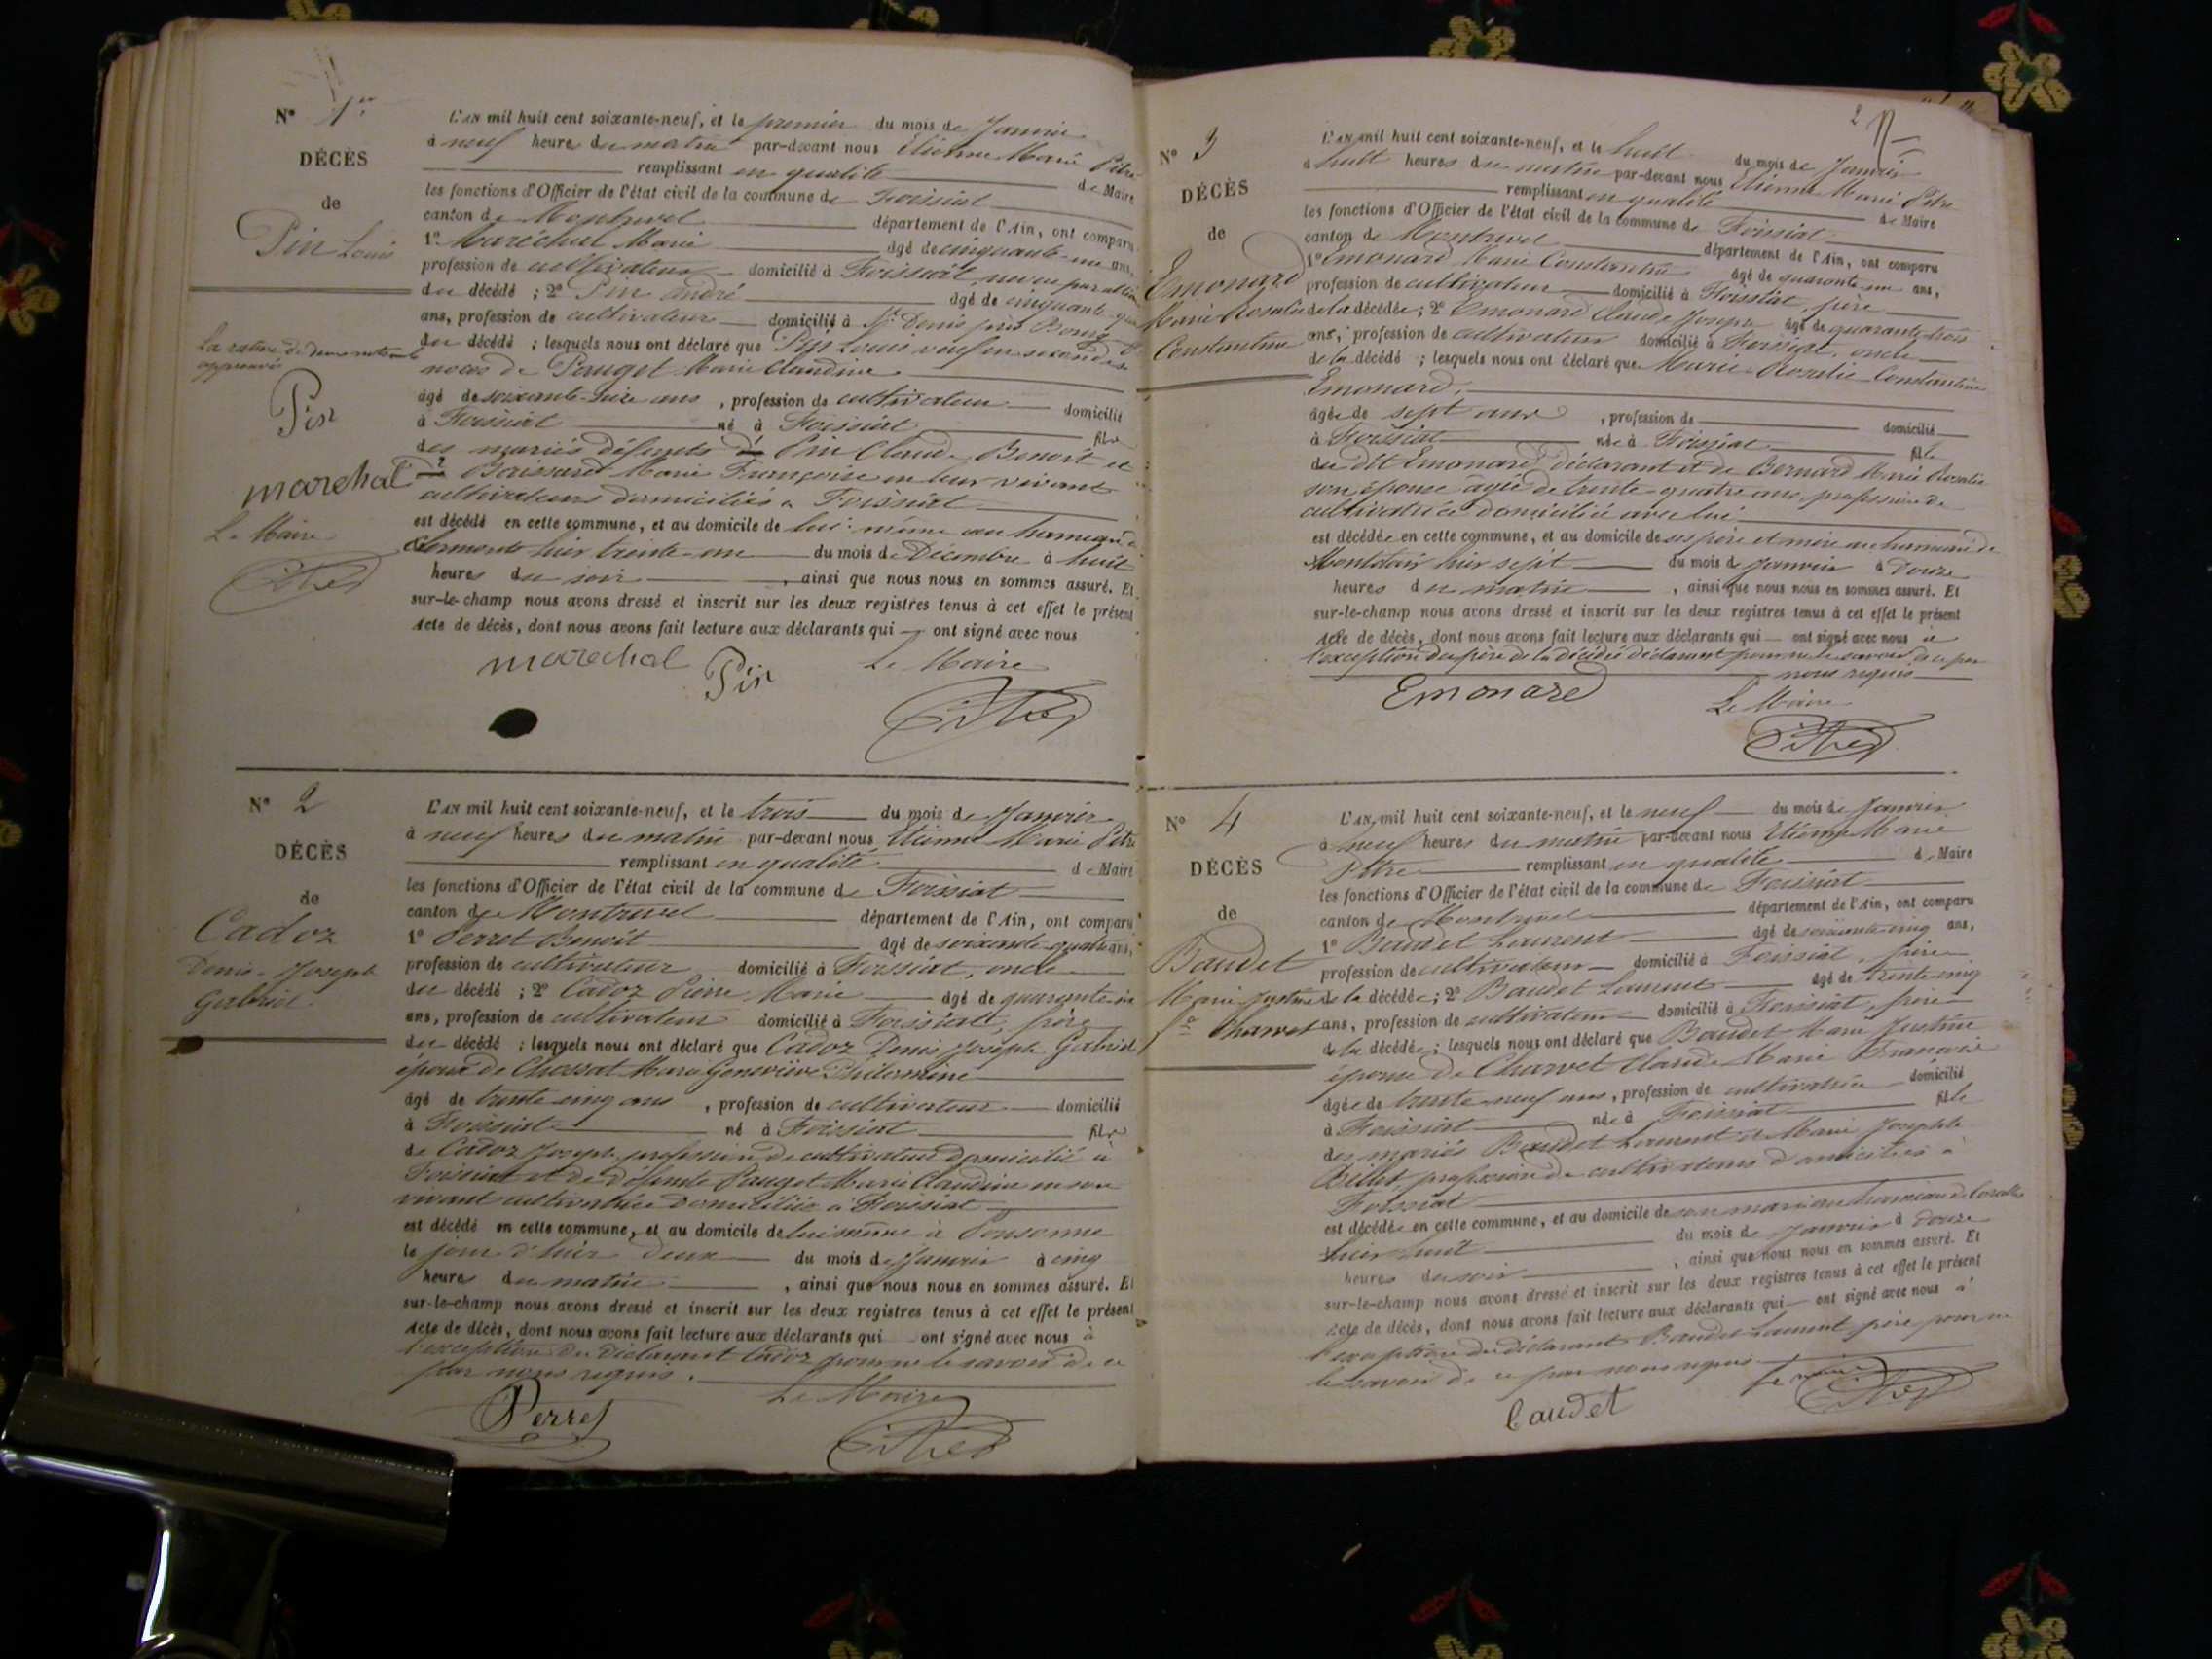 N° 1er
DÉCÈS
de
Pin Louis
La rature de deux mots
approuvée
Pin
marechal
Le Maire
L'AN mil huit cent soixante-neuf, et le premier du mois de Janvier
à neuf heures du matin par-devant nous Etienne Marie Pitre
remplissant en qualité de Maire
les fonctions d'Officier de l'état civil de la commune de Foissiat
canton de Montrevel département de l'Ain, ont comparu
1° Maréchal Marie âgé de cinquante-un ans,
profession de cultivateur domicilié à Foissiat, neveu par
du décédé ; 2° Pin André âgé de cinquante
ans, profession de cultivateur domicilié à St Denis près Bourg
du décédé ; lesquels nous ont déclaré que Pin Louis veuf en secondes
noces de Pauget Marie Claudine
âgé de soixante-seize ans , profession de cultivateur domicilié
à Foissiat né à Foissiat fils
des mariés défunts Pin Claude Benoît et
Boissard Marie Françoise en leur vivant
cultivateurs domiciliés à Foissiat
est décédé en cette commune, et au domicile de lui-même au hameau de
hier trente-un du mois de Décembre à huit
heures du soir , ainsi que nous nous en sommes assuré. Et
sur-le-champ nous avons dressé et inscrit sur les deux registres tenus à cet effet le présent
Acte de décès, dont nous avons fait lecture aux déclarants qui ont signé avec nous
marechal Pin Le Maire
Pitre
N° 2
DÉCÈS
de
Cadoz
Denis-Joseph
Gabriel
L'AN mil huit cent soixante-neuf, et le trois du mois de Janvier
à neuf heures du matin par-devant nous Etienne Marie Pitre
remplissant en qualité de Maire
les fonctions d'Officier de l'état civil de la commune de Foissiat
canton de Montrevel département de l'Ain, ont comparu
1° Perret Benoît âgé de soixante-quatre ans,
profession de cultivateur domicilié à Foissiat, oncle
du décédé ; 2° Cadoz Pierre Marie âgé de quarante
ans, profession de cultivateur domicilié à Foissiat, frère
du décédé ; lesquels nous ont déclaré que Cadoz Denis Joseph Gabriel
époux de Chossat Marie Geneviève Philermine
âgé de trente cinq ans , profession de cultivateur domicilié
à Foissiat né à Foissiat fils
de Cadoz Joseph profession de cultivateur domicilié à
Foissiat et de défunte Pauget Marie Claudine en son
vivant cultivatrice domiciliée à Foissiat
est décédé en cette commune, et au domicile de lui même à
le jour d'hier deux du mois de Janvier à cinq
heures du matin , ainsi que nous nous en sommes assuré. Et
sur-le-champ nous avons dressé et inscrit sur les deux registres tenus à cet effet le présent
Acte de décès, dont nous avons fait lecture aux déclarants qui ont signé avec nous à
l'exception du déclarant Cadoz pour ne le savoir de ce
par nous requis.
Perret Le Maire
Pitre
2
N° 3
DÉCÈS
de
Emonard
Marie Rosalie
Constantine
L'AN mil huit cent soixante-neuf, et le huit du mois de Janvier
à huit heures du matin par-devant nous Etienne Marie Pitre
remplissant en qualité de Maire
les fonctions d'Officier de l'état civil de la commune de Foissiat
canton de Montrevel département de l'Ain, ont comparu
1° Emonard Marie Constantin âgé de quarante-un ans,
profession de cultivateur domicilié à Foissiat, père
de la décédée ; 2° Emonard Claude Joseph âgé de quarante-trois
ans, profession de cultivateur domicilié à Foissiat, oncle
de la décédé ; lesquels nous ont déclaré que Marie-Rosalie-Constantine
Emonard,
âgée de sept ans , profession de domicilié
à Foissiat née à Foissiat fille
du dit Emonard déclarant et de Bernard Marie Rosalie
son épouse âgée de trente-quatre ans, profession de
cultivatrice domiciliée avec lui
est décédée en cette commune, et au domicile de ses père et mère au hameau de
hier sept du mois de Janvier à douze
heures du matin , ainsi que nous nous en sommes assuré. Et
sur-le-champ nous avons dressé et inscrit sur les deux registres tenus à cet effet le présent
Acte de décès, dont nous avons fait lecture aux déclarants qui ont signé avec nous à
l'exception du père de la décédée déclarant pour ne le savoir de ce par
nous requis
Emonard Le Maire
Pitre
N° 4
DÉCÈS
de
Baudet
Marie Justine
fe Charvet
L'AN mil huit cent soixante-neuf, et le neuf du mois de Janvier
à neuf heures du matin par-devant nous Etienne Marie
Pitre remplissant en qualité de Maire
les fonctions d'Officier de l'état civil de la commune de Foissiat
canton de Montrevel département de l'Ain, ont comparu
1° Baudet Laurent âgé de soixante-cinq ans,
profession de cultivateur domicilié à Foissiat, père
de la décédée ; 2° Baudet Laurent âgé de trente-cinq
ans, profession de cultivateur domicilié à Foissiat, frère
de la décédée ; lesquels nous ont déclaré que Baudet Marie Justine
épouse de Charvet Claude Marie François
âgée de trente-neuf ans , profession de cultivatrice domicilié
à Foissiat née à Foissiat fille
des mariés Baudet Laurent et Marie Josephte
Billet, profession de cultivateurs domiciliés à
Foissiat
est décédée en cette commune, et au domicile de son mari au hameau de
hier huit du mois de Janvier à douze
heures du soir , ainsi que nous nous en sommes assuré. Et
sur-le-champ nous avons dressé et inscrit sur les deux registres tenus à cet effet le présent
Acte de décès, dont nous avons fait lecture aux déclarants qui ont signé avec nous à
l'exception du déclarant Baudet Laurent père pour ne
le savoir de ce par nous requis Le maire
baudet Pitre